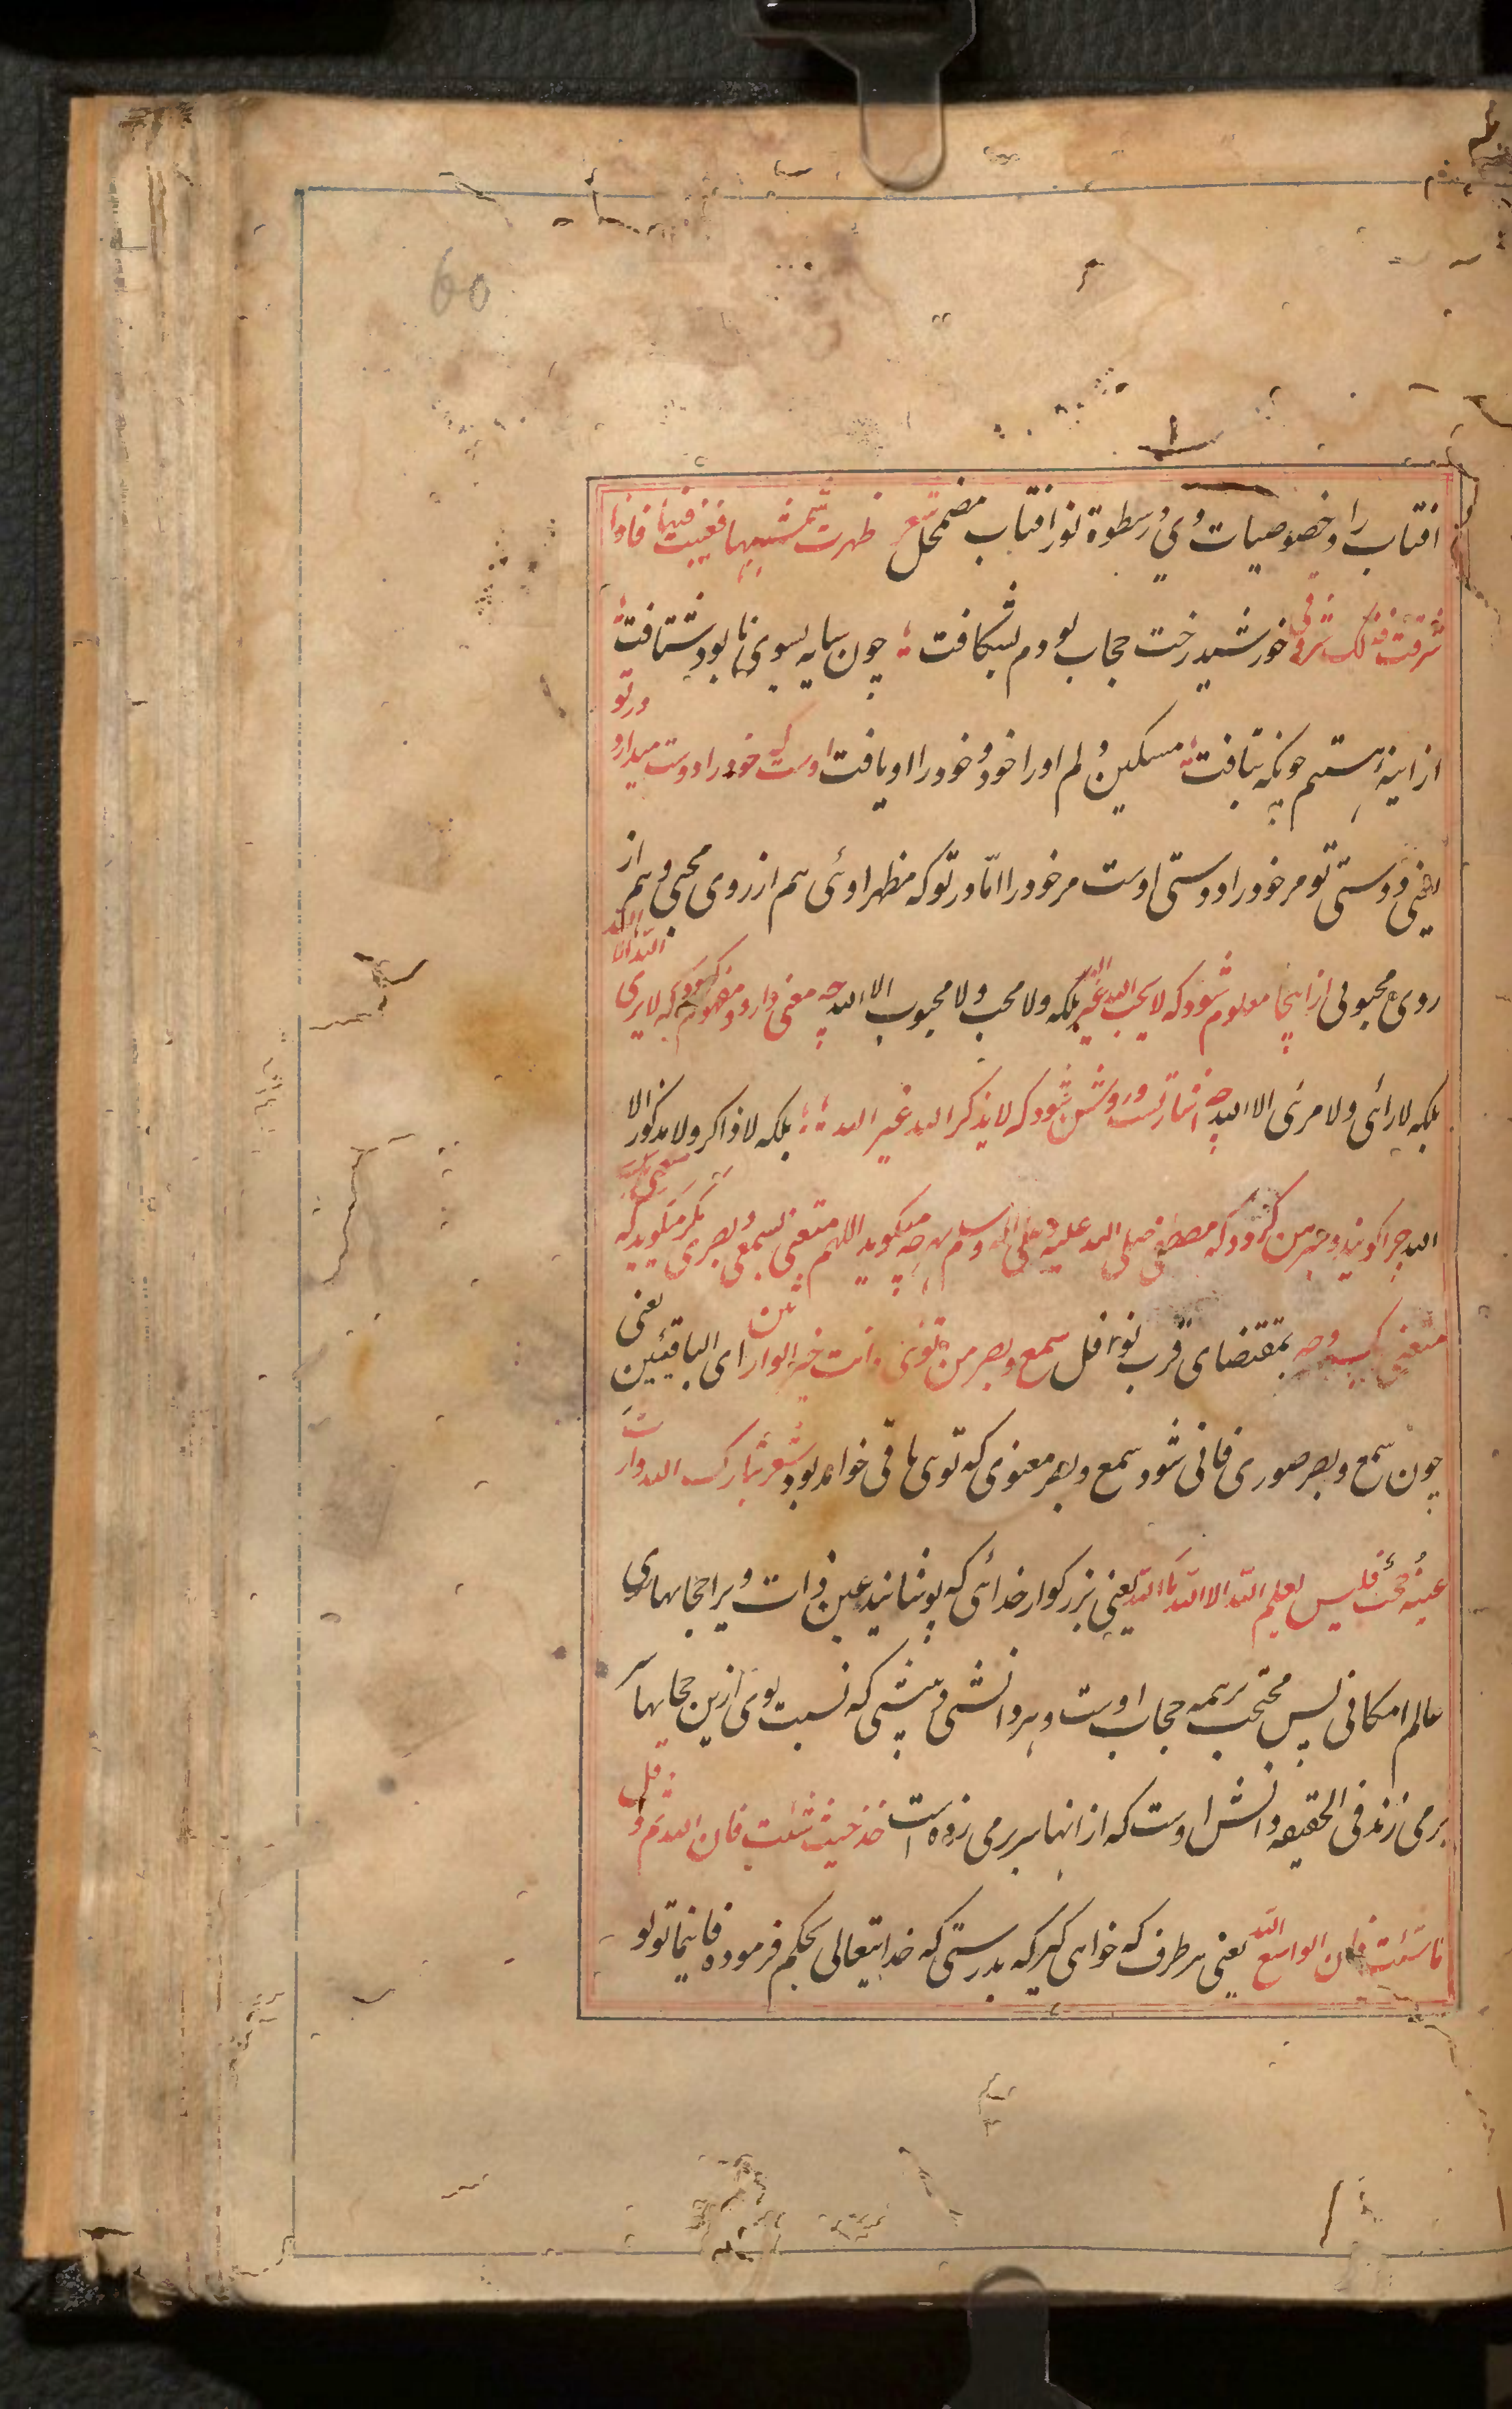 60
افتاب را و خصوصیات وی در سطوة نور افتاب مضمحل شعر ظهرت شمسها فغیبت فیها فاذا
شرقت فذلک شروقی خورشید رخت حجاب بودم بشکافت چون سایه بسوی نابود شتافت
از اینه هستیم چونکه بتافت مسکین دلم او را خود و خود را او یافت اوست که خود را دوست میدارد در تو
یعنی دوستی تو مر خود را دوستی اوست مر خود را اما در تو که مظهر اوئی هم از روی محبی و هم از
روی محبوبی از اینجا معلوم شود که لا یحب الله غیر الله بلکه ولا محب ولا محبوب الا الله چه معنی دارد و مفهوم گردد که لا یری الله الا الله
بلکه لا رائی ولا مرئی الا الله چه اشارتست و روشن شود که لا یذکر الله غیر الله بلکه لا ذاکر ولا مذکور الا
الله چرا گویند و مبرهن گردد که مصطفی صلی الله علیه وعلی اله وسلم بهر چه میگوید اللهم متعنی بسمعی وبصری مگر میگوید که
متعنی بک وچه بمقتضای قرب نوافل سمع و بصر من توئی وانت خیر الوارثین ای الباقین یعنی
چون سمع و بصر صوری فانی شود سمع و بصر معنوی که توی باقی خواهد بود شعر تبارک الله وارت
عینه حجب فلیس یعلم الله الا الله یا الله یعنی بزرکوار خدائی که پوشانید عین ذات ویرا حجابهای
عالم امکانی پس محتجب بهمه حجاب اوست و هر دانشی و بینشی که نسبت بوی ازین حجابها
برمی زند فی الحقیقه دانش اوست که از انها سر برمی زده است خذ حیث شئت فان الله ثم وقل
ما شئت فان الواسع الله یعنی هر طرف که خواهی کیر که بدرستی که خدایتعالی بحکم فرموده فاینما تولو